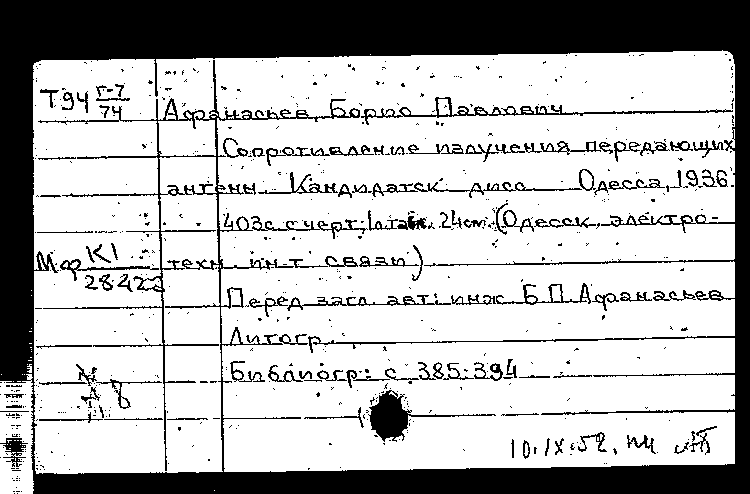 Т94 г-7/74
Афанасьев, Борис Павлович
Сопротивление излучения передающих
антенн. Кандидатск. дисс. Одесса, 1936.
403с. с черт; 1 л. табл. 24см. (Одесск. электро-
техн. ин-т связи)
Мф К1/28422
Перед загл. авт: инж. Б.П. Афанасьев
Литогр.
Библиогр: с. 385-394
10.IX.52.